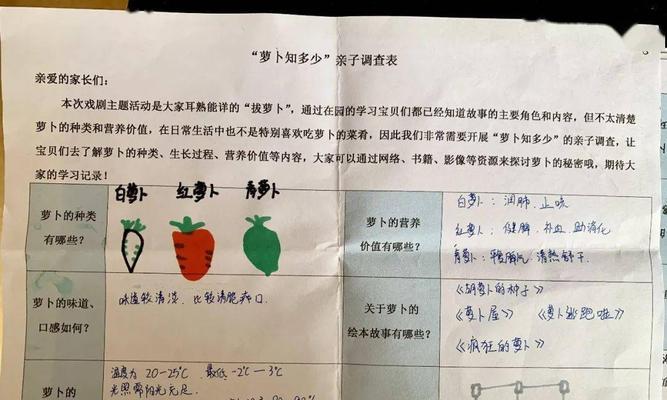 “萝卜知多少”亲子调查表
亲爱的家长们：
本次戏剧主题活动是大家耳熟能详的“拔萝卜”，通过在园的学习宝贝们都已经知道故事的主要角色和内容，但不太清楚
萝卜的种类和营养价值，在日常生活中也不是特别喜欢吃萝卜的菜肴，因此我们非常需要开展“萝卜知多少”的亲子调查，让
宝贝们去了解萝卜的种类、生长过程、营养价值等内容，大家可以通过网络、书籍、影像等资源来探讨萝卜的秘密哦，期待大
家的学习记录！
萝卜的种类
有哪些？
白萝卜 红萝卜 青萝卜
萝卜的营养
价值有哪些？
白萝卜：润肺、止咳
红萝卜：健脾、补血、助消化
青萝卜：清热舒干
萝卜的味道、
口感如何？
味道较清淡、比较清脆爽口
关于萝卜的
绘本故事有哪些？
《胡萝卜的种子》
《萝卜屋》 《萝卜逃跑啦》
《疯狂的萝卜》
萝卜的
温度为 20-25℃ 最低-2℃—3℃
光照需阳光充足